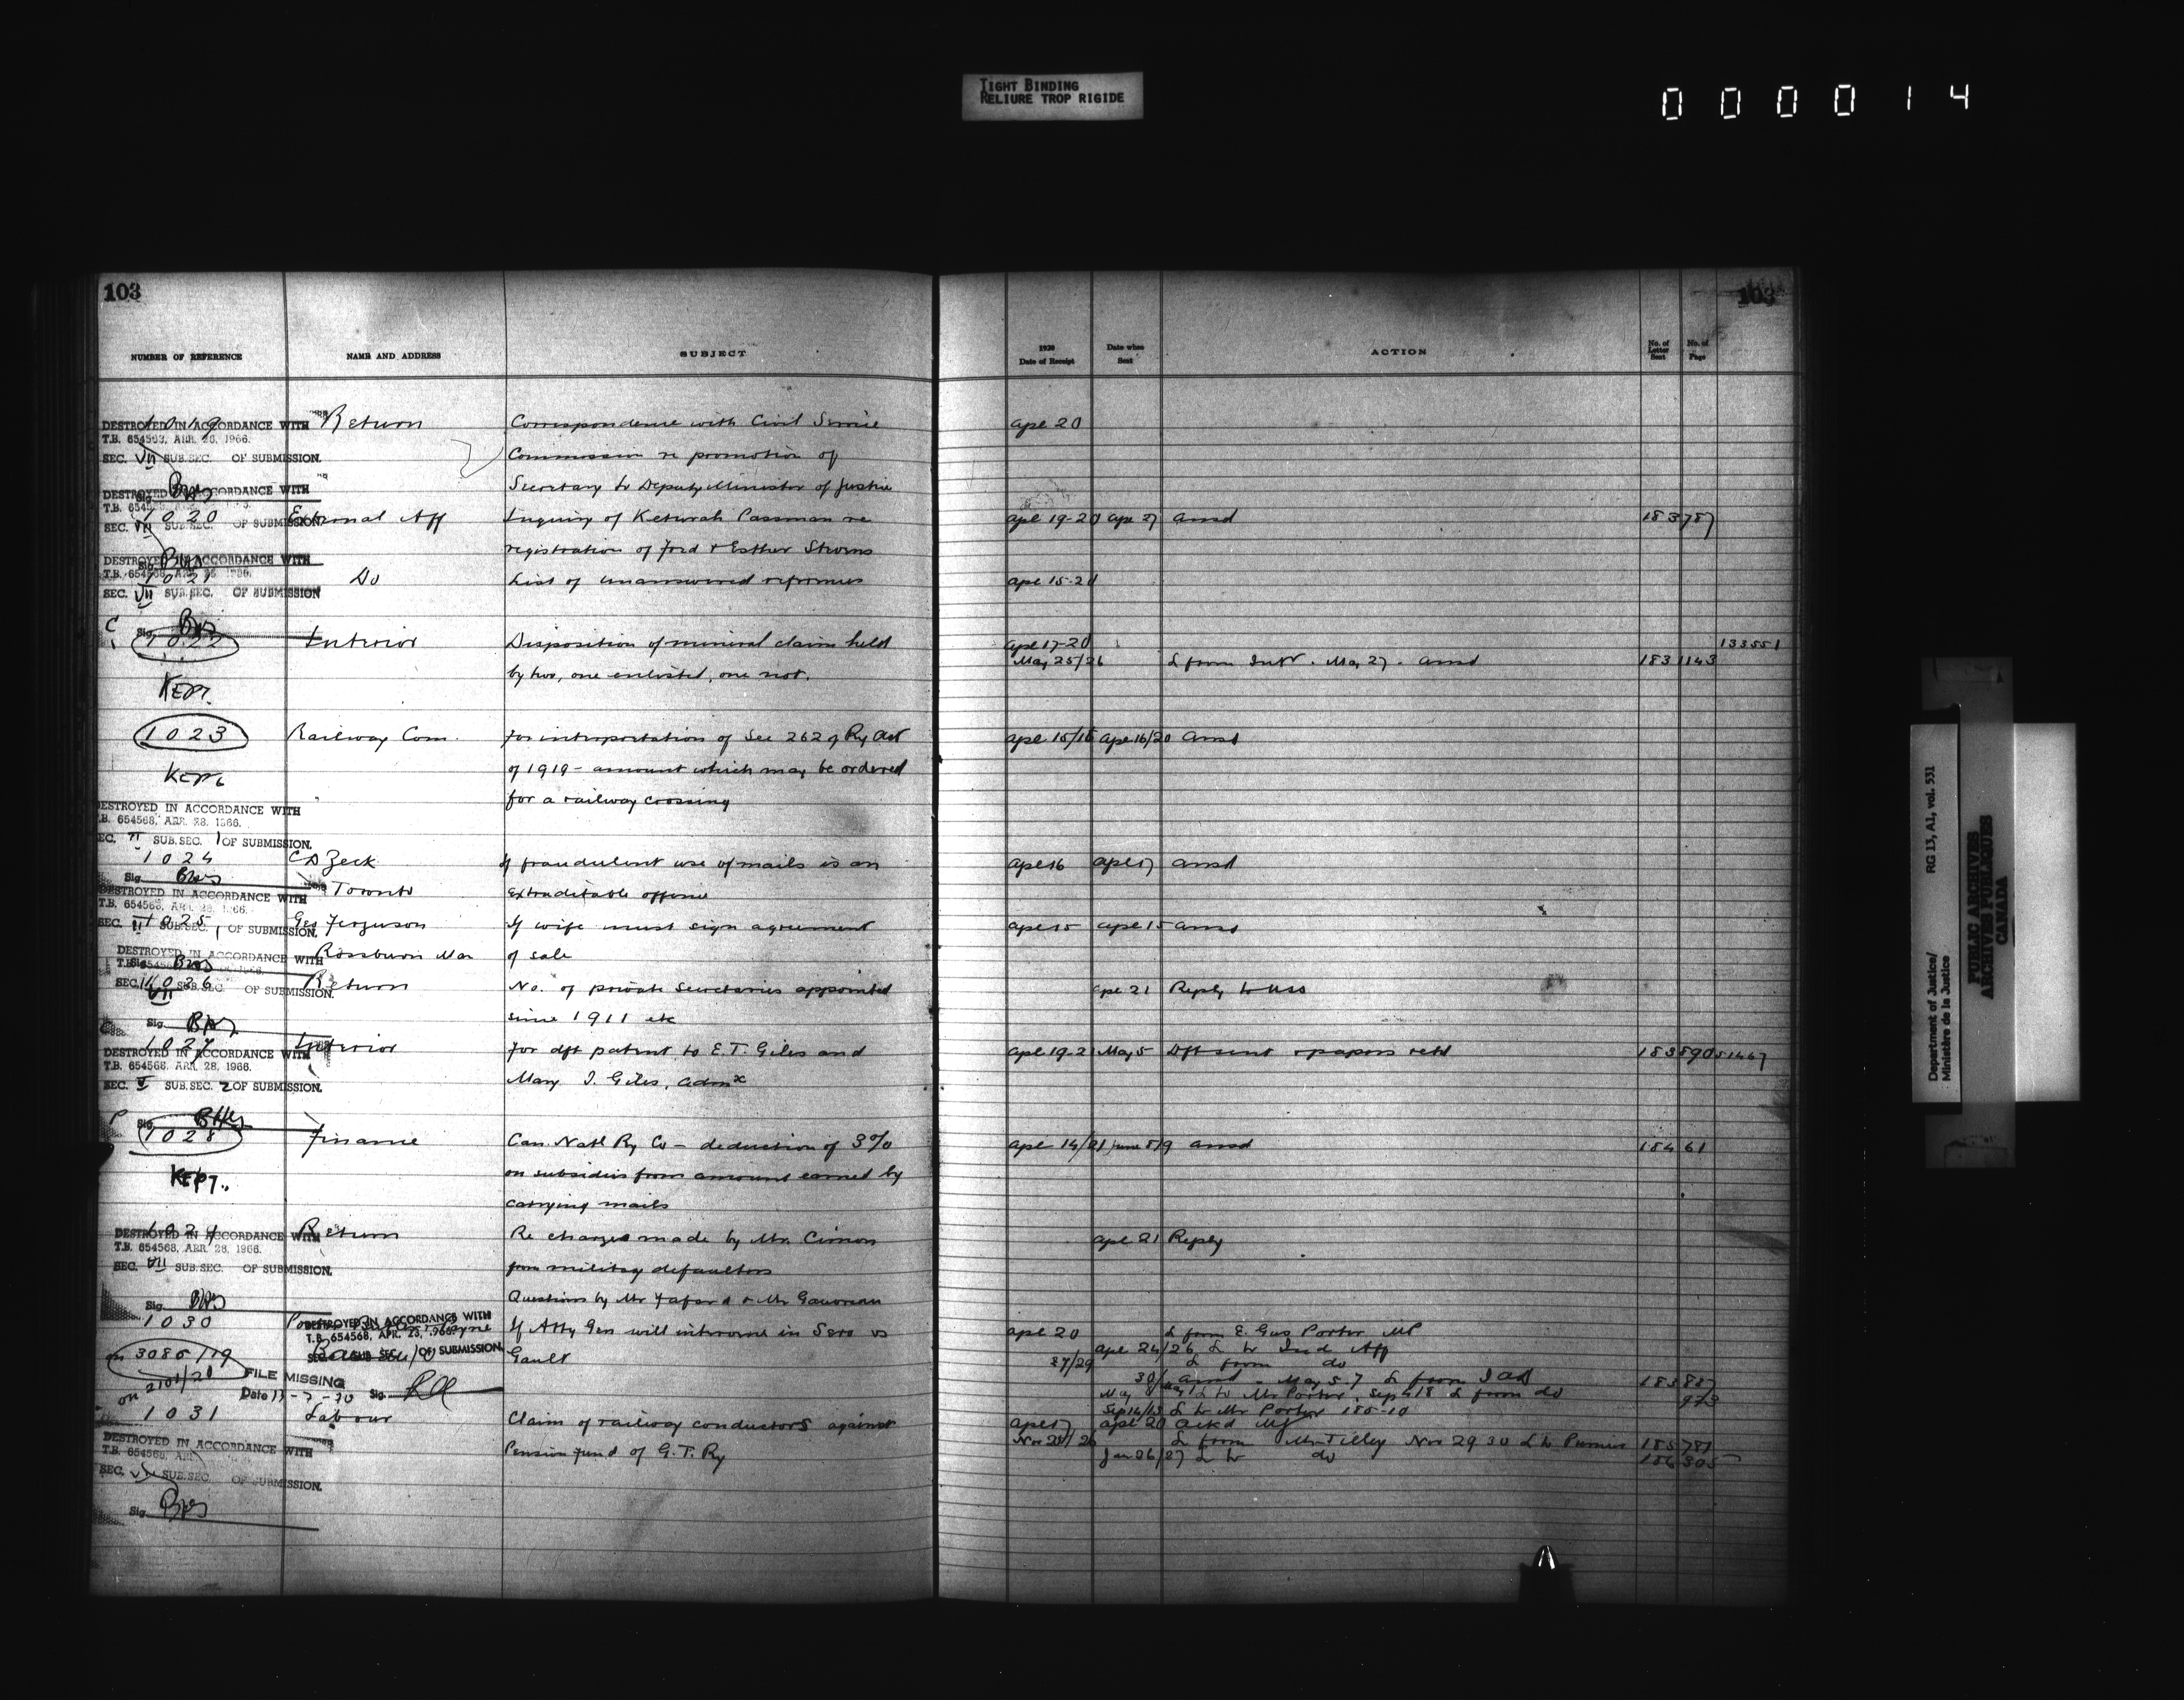 TIGHT BINDING
RELIURE TROP RIGIDE
0 0 0 0 1 4
103
103
NUMBER OF REFERENCE NAME AND ADDRESS SUBJECT
1920 Date of Receipt Date when Sent ACTION No. of Letter Sent No. of Page
1019 Return Correspondence with Civil Service Apl 20
DESTROYED IN ACCORDANCE WITH
T.B. 654568, APR. 28, 1966.
SEC. VII SUB.SEC. OF SUBMISSION.
Commission re promotion of
Secretary to Deputy Minister of Justice
DESTROYED IN ACCORDANCE WITH
T.B. 654568
SEC. VII SUB.SEC. OF SUBMISSION
1020 External Aff Inquiry of Keturah Passman re Apl 19-20 Apr 27 Ansd 183 787
registration of Fred & Esther
DESTROYED IN ACCORDANCE WITH
T.B. 654568, APR. 28, 1966.
SEC. VII SUB.SEC. OF SUBMISSION
1021 Do List of unanswered references Apl 15-20
Sig.
C 1022 Interior Disposition of mineral claim held Apl 17-20 133551
May 25/26 L from Intr. May 27. Ansd 183 1143
by two, one enlisted, one not.
KEPT.
1023 Railway Com. For interpretation of Sec 262 of Ry Act Apl 15/16 Apl 16/20 Ansd
of 1919 - amount which may be ordered
KEPT
for a railway crossing
DESTROYED IN ACCORDANCE WITH
T.B. 654568, APR. 28, 1966.
SEC. VI SUB.SEC. 1 OF SUBMISSION.
1024 C D Zeck If fraudulent use of mails is an Apl 16 Apl 17 Ansd
Sig.
Toronto Extraditable offense
DESTROYED IN ACCORDANCE WITH
T.B. 654568, APR. 28, 1966.
SEC. SUB.SEC. 1 OF SUBMISSION.
1025 Geo Ferguson If wife must sign agreement Apl 15 Apl 15 Ansd
Rossburn Man of sale
DESTROYED IN ACCORDANCE WITH
T.B. 654568
SEC. VII SUB.SEC. OF SUBMISSION.
1026 Return No. of private secretaries appointed Apl 21 Reply to
since 1911 etc
Sig.
1027 Interior For dft patent to E.T. Giles and Apl 19-21 May 5 Dft sent & papers retd 183 890 51467
DESTROYED IN ACCORDANCE WITH
T.B. 654568, APR. 28, 1966.
SEC. V SUB.SEC. 2 OF SUBMISSION.
Mary J. Giles, admx
Sig.
P 1028 Finance Can. Natl Ry Co - deduction of 3% Apl 14/21 June 8/9 Ansd 184 61
on subsidies from amount earned by
KEPT.
carrying mails
1029 Return Re charges made by Mr. Cimon Apl 21 Reply
DESTROYED IN ACCORDANCE WITH
T.B. 654568, APR. 28, 1966.
SEC. VII SUB.SEC. OF SUBMISSION.
from military defaulters
Questions by Mr Fafard & Mr Gauvreau
Sig.
1030 If Atty Gen will intervene in Sero vs Apl 20 L from E. Gus Porter MP
DESTROYED IN ACCORDANCE WITH
T.B. 654568, APR. 23, 1966.
SEC. SUB. SEC. OF SUBMISSION.
on 3085/19 Gault Apl 24/26 L to Ind Aff
27/29 L from do
on 2101/21
FILE MISSING
Date 13-7-70 Sig.
30/ Ansd - May 5.7 L from I Aff 183 887
May L to Mr Porter, Sep 4 18 L from do 973
Sep 14/15 L to Mr Porter 185-10
1031 Labour Claim of railway conductors against Apl 17 Apl 20 Ackd
Pension fund of G.T. Ry Nov 25/26 L from Mr Tilley Nov 29 30 L to Premier 185 781
Jan 26/27 L to do 186 305
DESTROYED IN ACCORDANCE WITH
T.B. 654568
SEC. SUB.SEC. OF SUBMISSION.
Sig.
Department of Justice/ RG 13, A1, vol. 531
Ministère de la Justice
PUBLIC ARCHIVES
ARCHIVES PUBLIQUES
CANADA